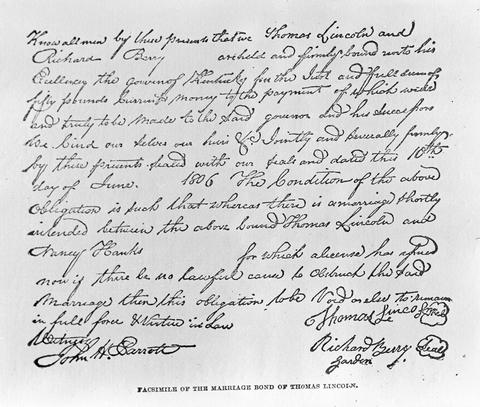 Know all men by these presents that we Thomas Lincoln and
Richard Berry are held and firmly bound unto his
Excellency the governor of Kentucky for the Just and full sum of
fifty pounds current money to the payment of which well
and truly to be made to the said governor and his successors
We bind our selves our heirs &c Jointly and severally firmly
by these presents sealed with our seals and dated this 10th
day of June 1806 The Condition of the above
Obligation is such that whereas there is a marriage shortly
intended between the above bound Thomas Lincoln and
Nancy Hanks for which a license has issued
now if there be no lawful cause to obstruct the said
Marriage then this obligation to be Void or else to remain
in full force & Virtue in Law
Thomas Lincoln Seal
Witness
John H. Parrott
Richard Berry Seal
garden
FACSIMILE OF THE MARRIAGE BOND OF THOMAS LINCOLN.